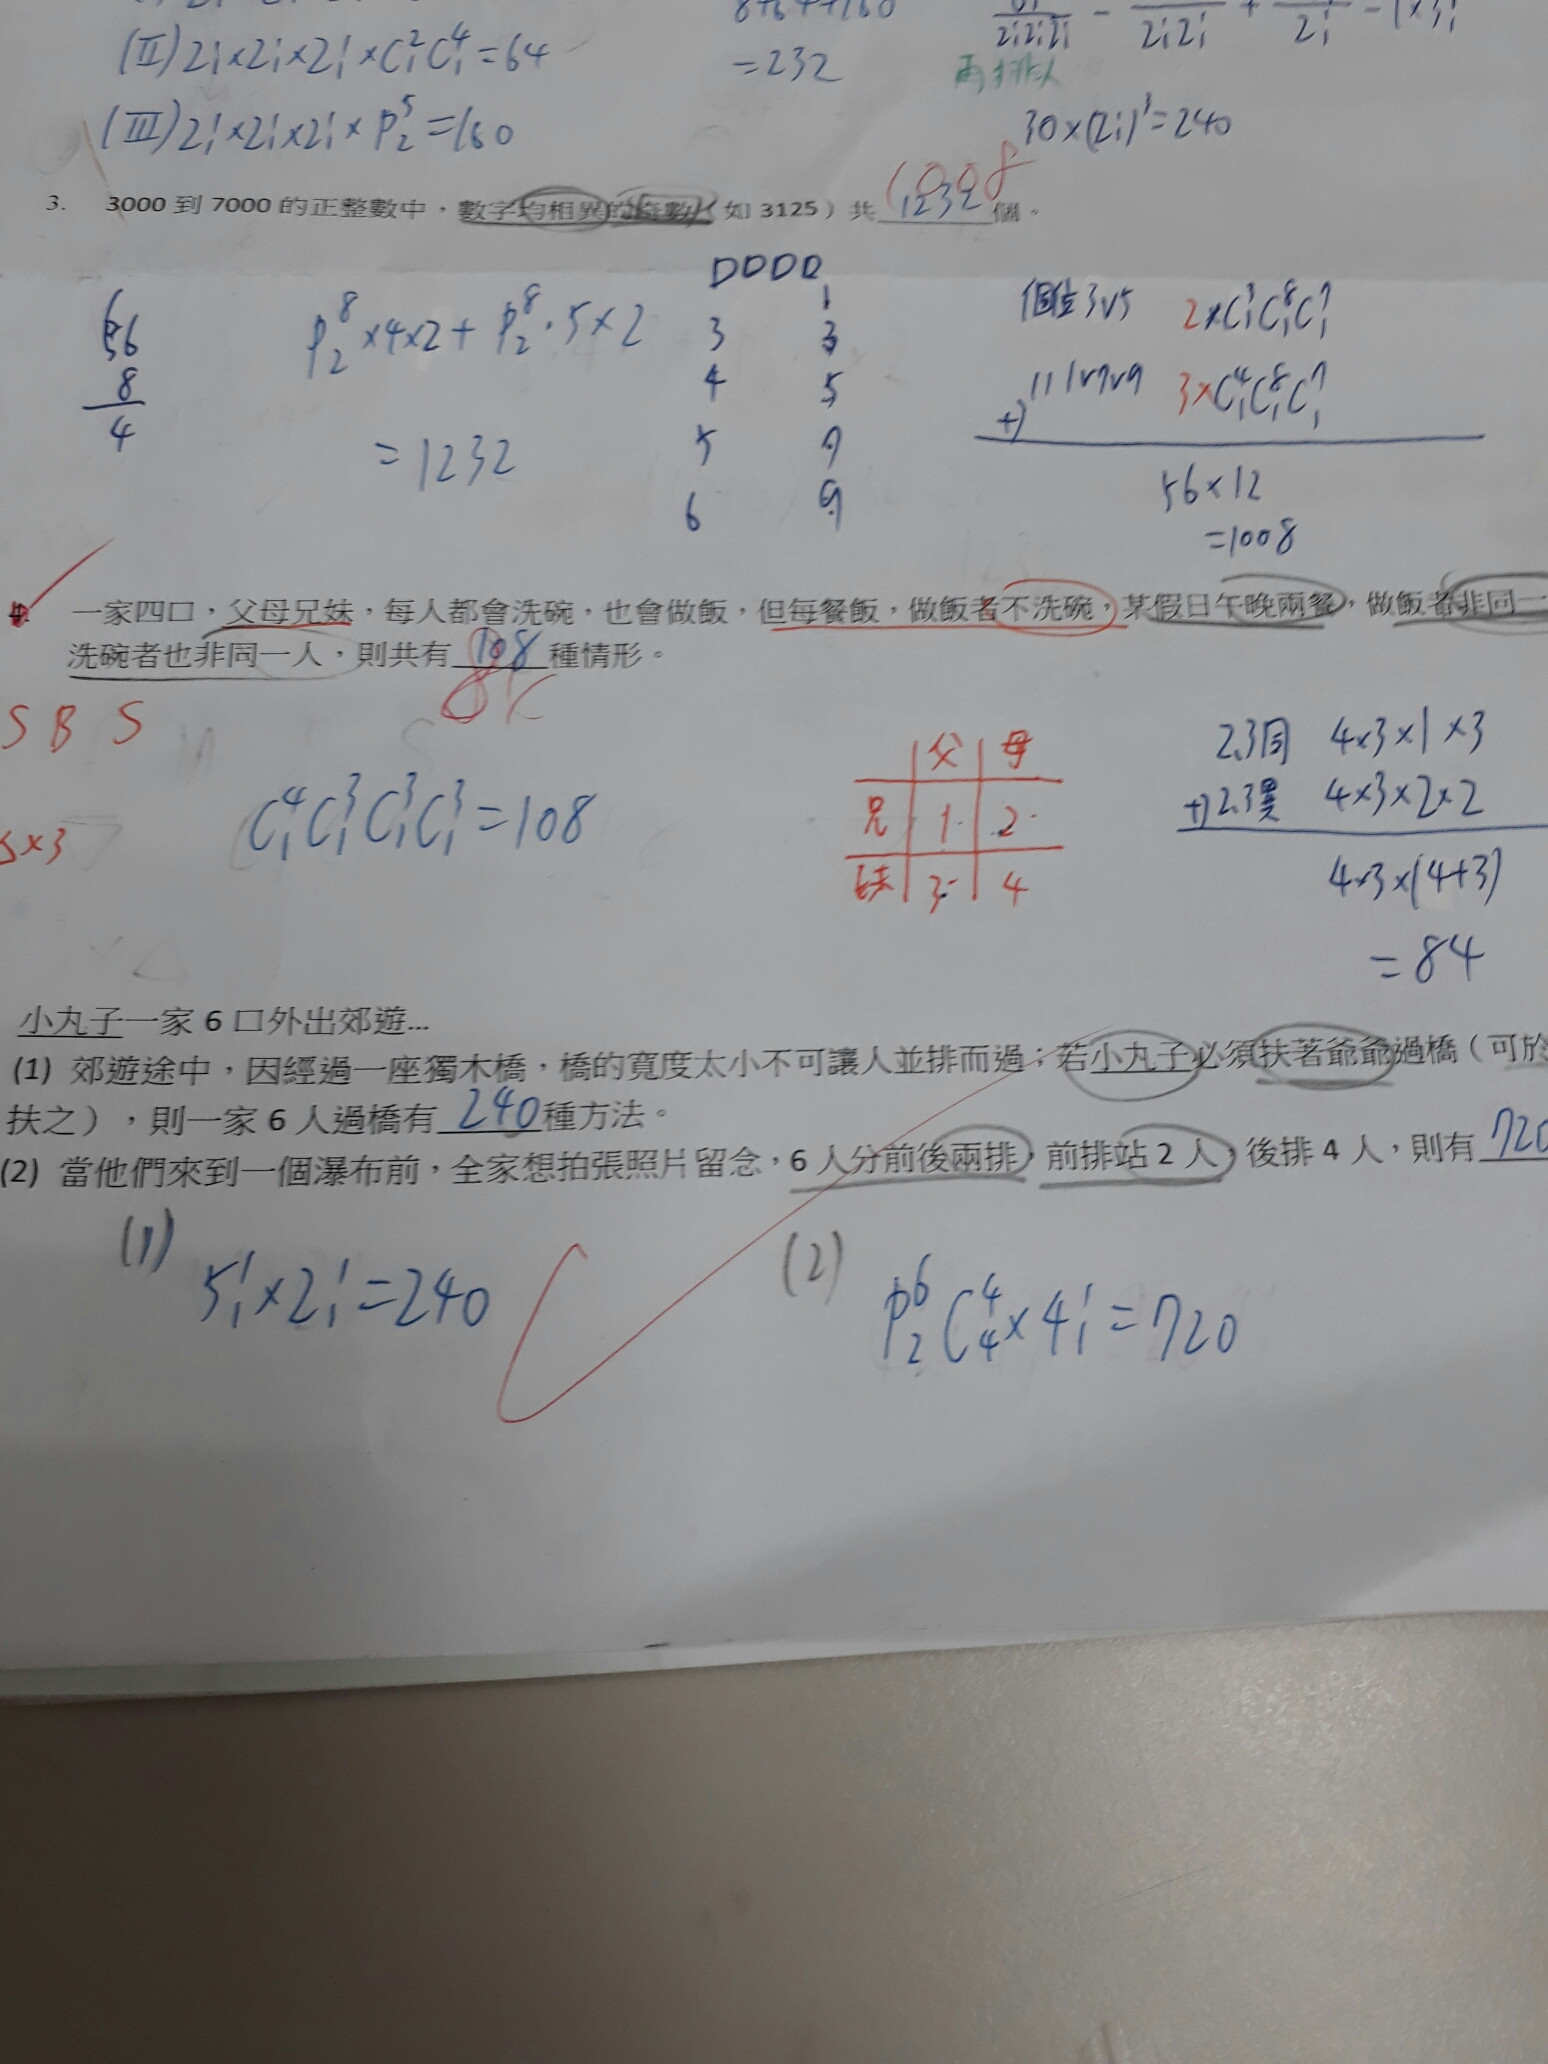 8+64+160
(II) 2!×2!×2!×C²₁C⁴₁=64
=232
2!2!2! - 2!2! + 2! - 1×3!
再排人
(III) 2!×2!×2!×P⁵₂=160
30×(2!)³=240
3. 3000 到 7000 的正整數中，數字均相異的奇數（如 3125）共 1232 個。
1008
6
56
8
4
P⁸₂×4×2+P⁸₂·5×2
=1232
□□□□
1
3 3
4 5
5 7
6 9
個位3∨5 2×C³₁C⁸₁C⁷₁
+) 〃 1∨7∨9 3×C⁴₁C⁸₁C⁷₁
56×12
=1008
4. 一家四口，父母兄妹，每人都會洗碗，也會做飯，但每餐飯，做飯者不洗碗，某假日午晚兩餐，做飯者非同一
洗碗者也非同一人，則共有 108 種情形。
S B S
×3
C⁴₁C³₁C³₁C³₁=108
父 母
兄 1 2
妹 3 4
2.3同 4×3×1×3
+) 2.3異 4×3×2×2
4×3×(4+3)
=84
小丸子一家 6 口外出郊遊...
(1) 郊遊途中，因經過一座獨木橋，橋的寬度太小不可讓人並排而過；若小丸子必須扶著爺爺過橋（可於
扶之），則一家 6 人過橋有 240 種方法。
(2) 當他們來到一個瀑布前，全家想拍張照片留念，6 人分前後兩排，前排站 2 人，後排 4 人，則有 720
(1) 5!×2!=240
(2) P⁶₂C⁴₄×4!=720